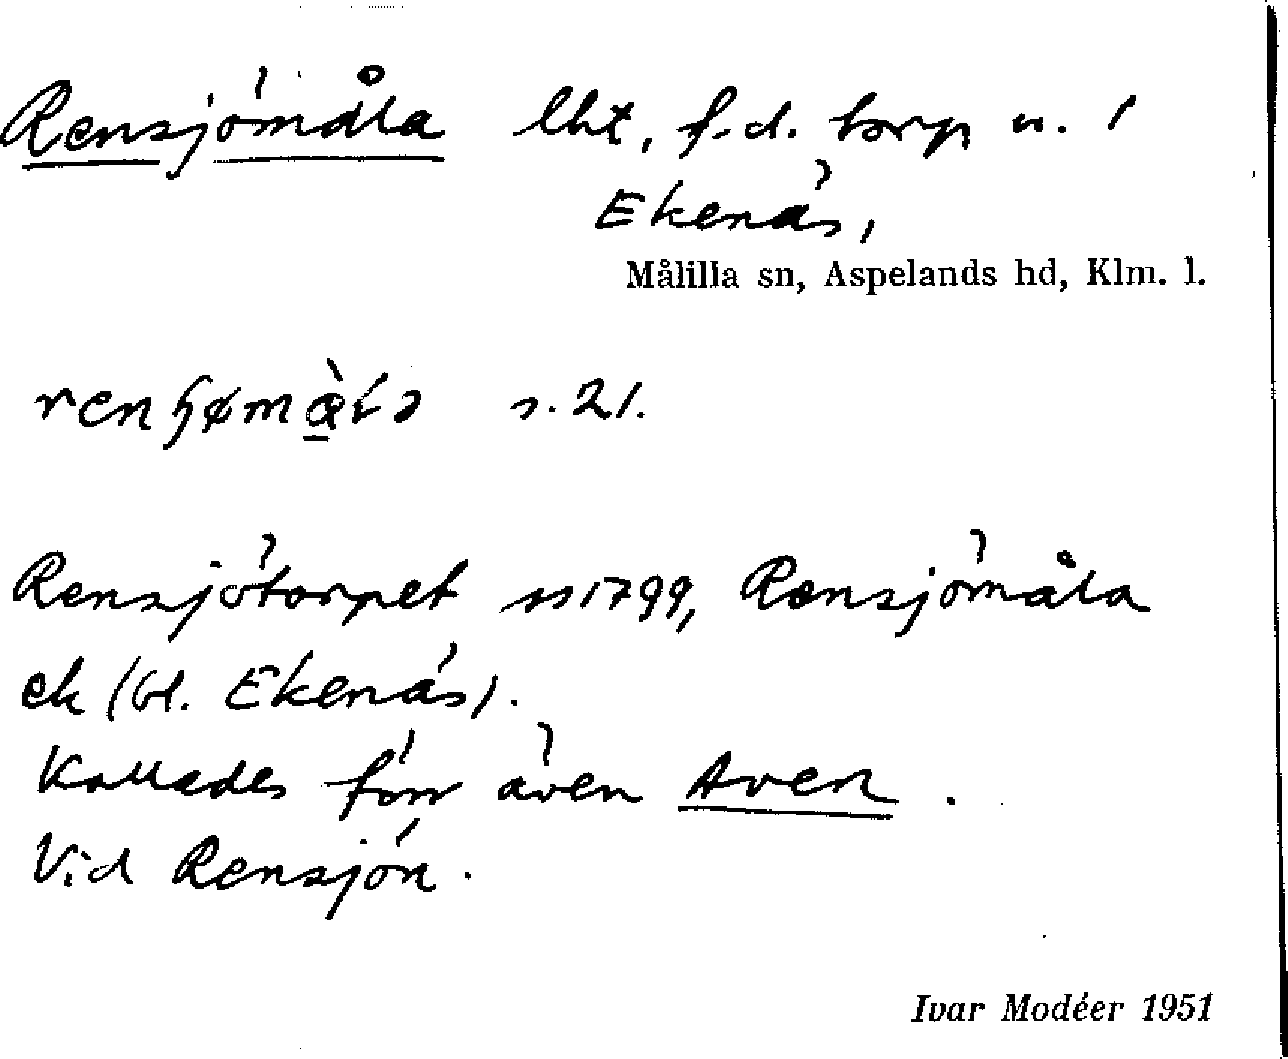 Rensjömåla lht, f.d. torp u. 1
Ekenäs,
Målilla sn, Aspelands hd, Klm. l.
s. 21.
Rensjötorpet 1799, Rensjömåla
ek (bl. Ekenäs).
Kallades förr även Aven.
Vid Rensjön.
Ivar Modéer 1951